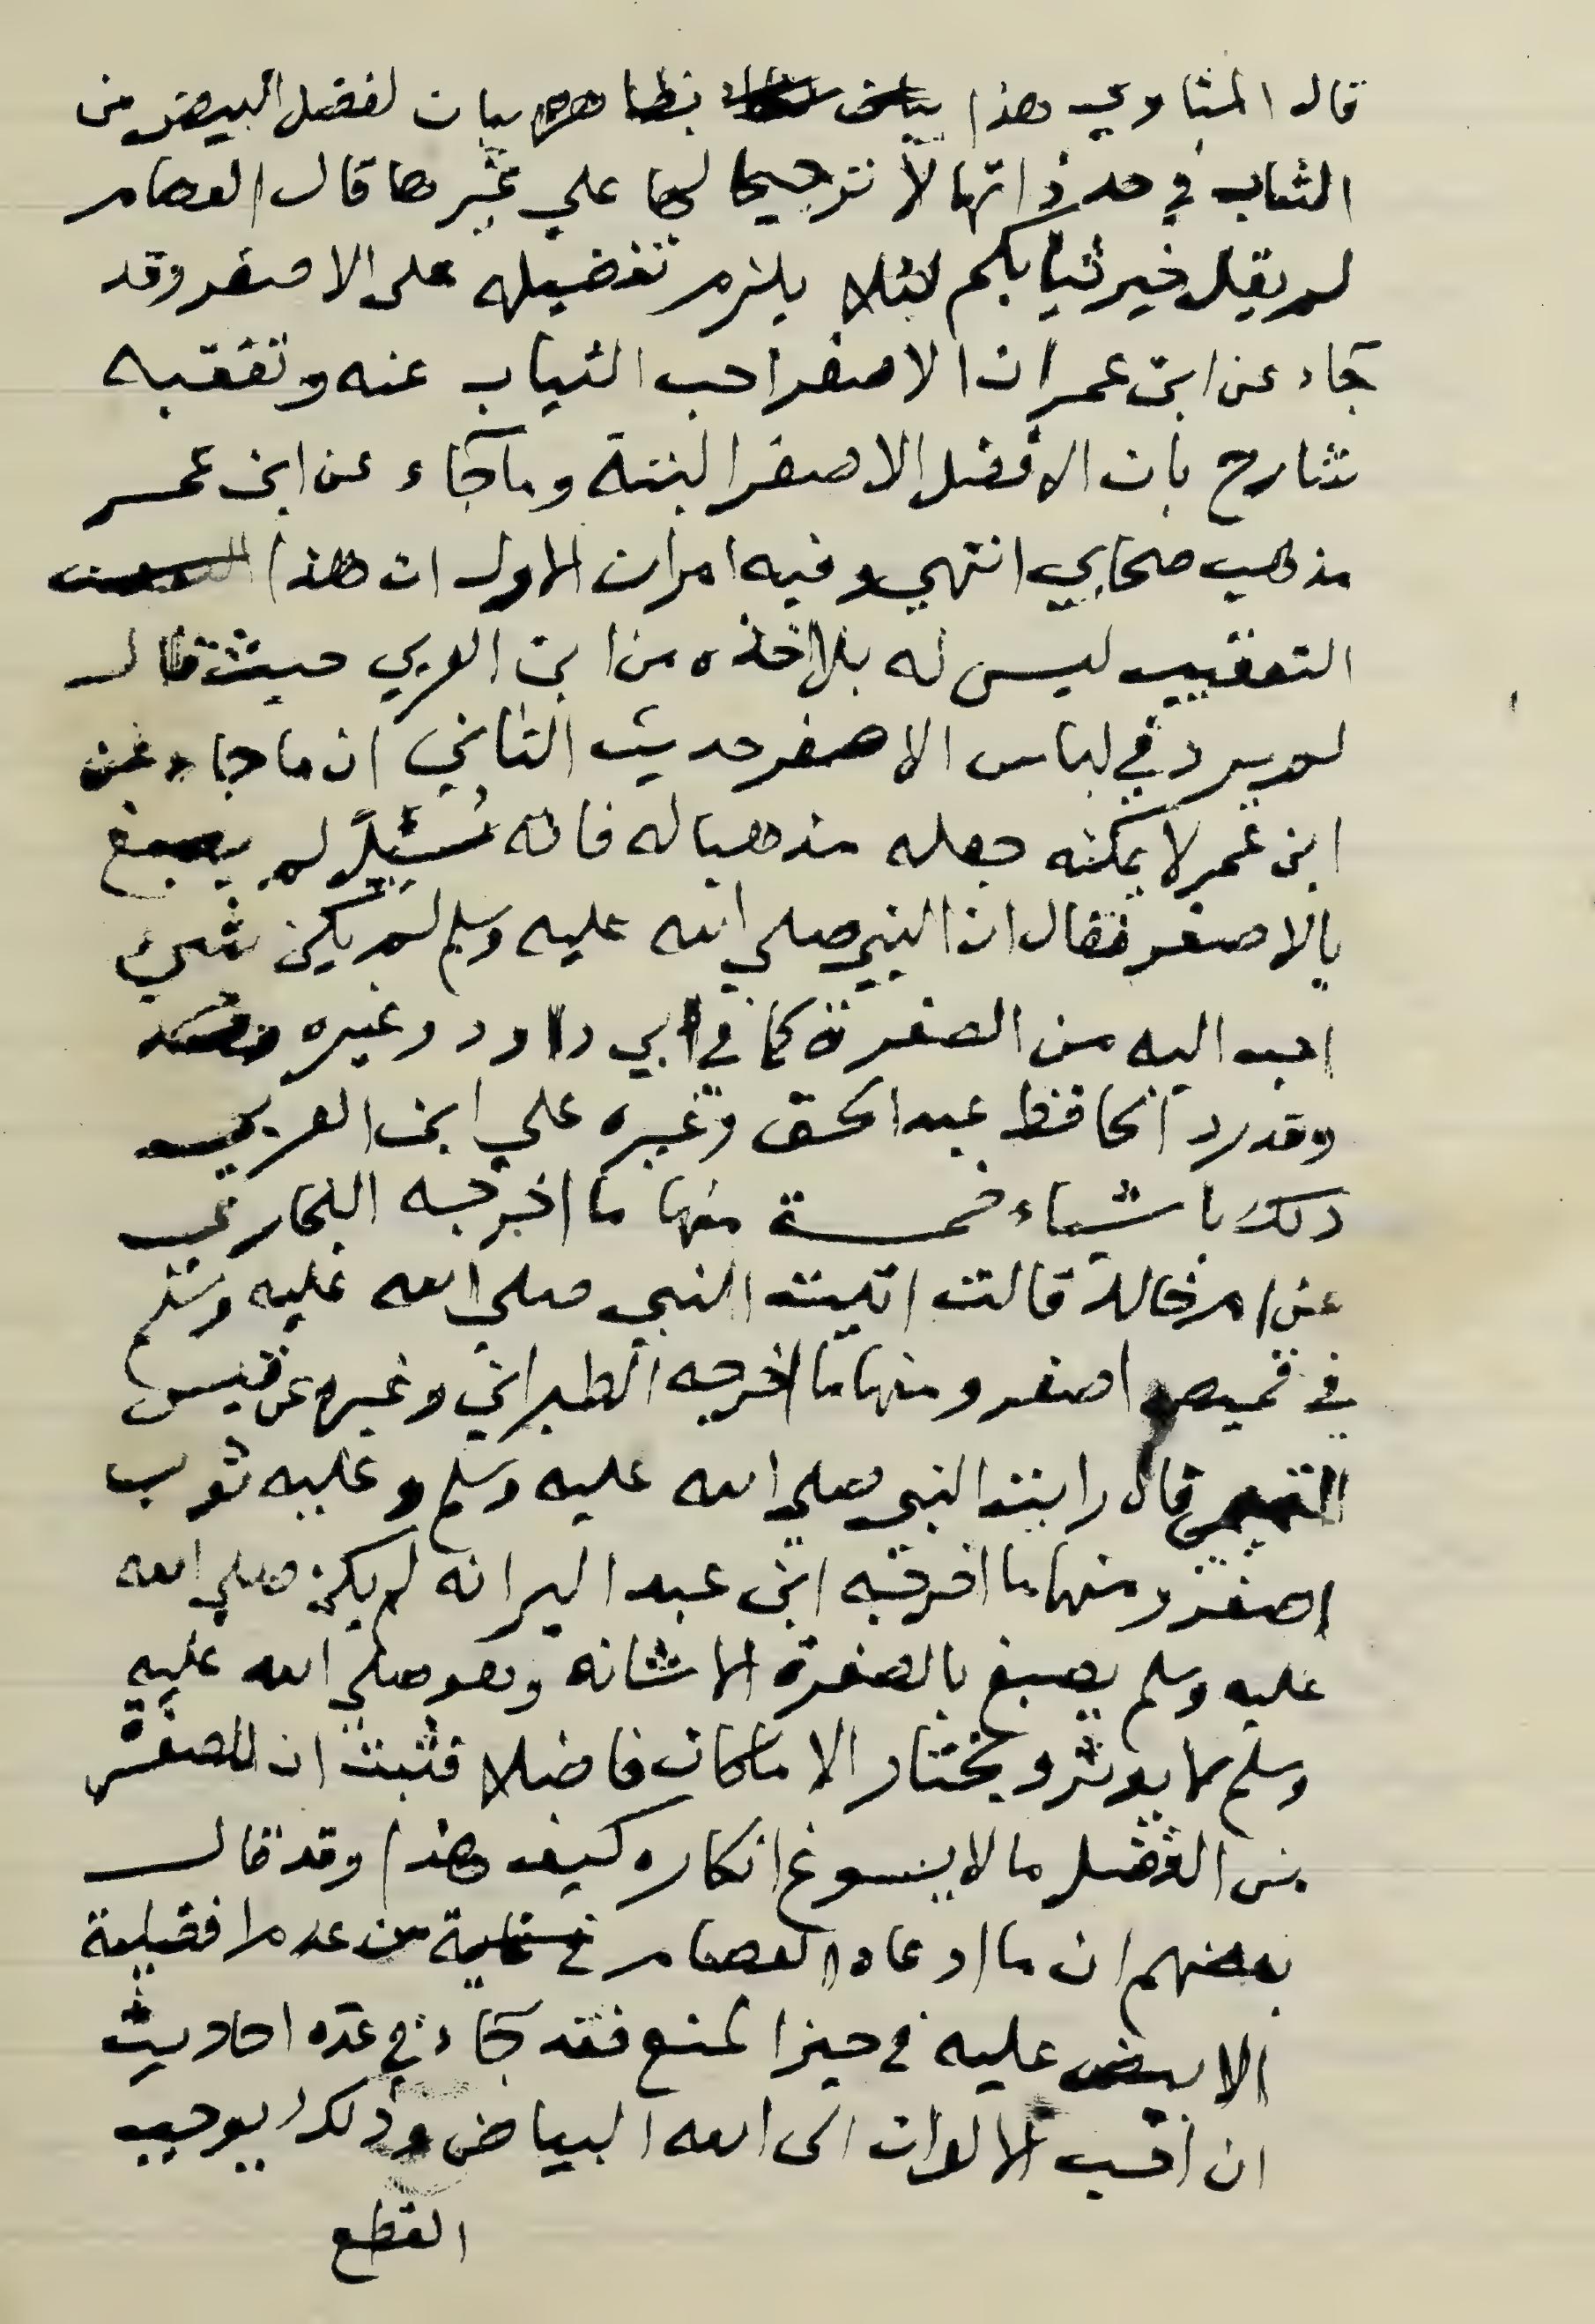 قال المناوي هذا بظاهره بيان لفضل البيض من
الثياب في حد ذاتها لا ترجيحا لها علي غيرها قال العصام
لم يقل خير ثيابكم لئلا يلزم تفضيله على الاصفر وقد
جاء عن ابن عمر ان الاصفر احب الثياب عنه وتعقبه
شارح بان الافضل الاصفر البتة وما جاء عن ابن عمر
مذهب صحابي انتهي وفيه امران الاول ان هذا
التعقيب ليس له بل اخذه من ابن العربي حيث قال
لم يرد في لباس الاصفر حديث الثاني ان ما جاء عن
ابن عمر لا يمكنه جعله مذهبا له فانه سئل لم يصبغ
بالاصفر فقال ان النبي صلي الله عليه وسلم لم يكن شيء
احب اليه من الصفرة كما في ابي داود وغيره
وقد رد الحافظ عبد الحق وغيره علي ابن العربي
ذلك باشياء خمسة منها ما اخرجه البخاري
عن ام خالد قالت اتيت النبي صلي الله عليه وسلم
في قميص اصفر ومنها ما اخرجه الطبراني وغيره عن قيس
التميمي قال رايت النبي صلي الله عليه وسلم وعليه ثوب
اصفر ومنها ما اخرجه ابن عبد البر انه لم يكن صلي الله
عليه وسلم يصبغ بالصفرة الا ثيابه وهو صلي الله عليه
وسلم لا يوثر ويختار الا ما كان فاضلا فثبت ان للصفرة
من الفضل ما لا يسوغ انكاره كيف هذا وقد قال
بعضهم ان ما ادعاه العصام من عدم افضلية
الابيض عليه في حيز المنع فقد جاء في عدة احاديث
ان احب الالوان الى الله البياض وذلك يوجب
القطع